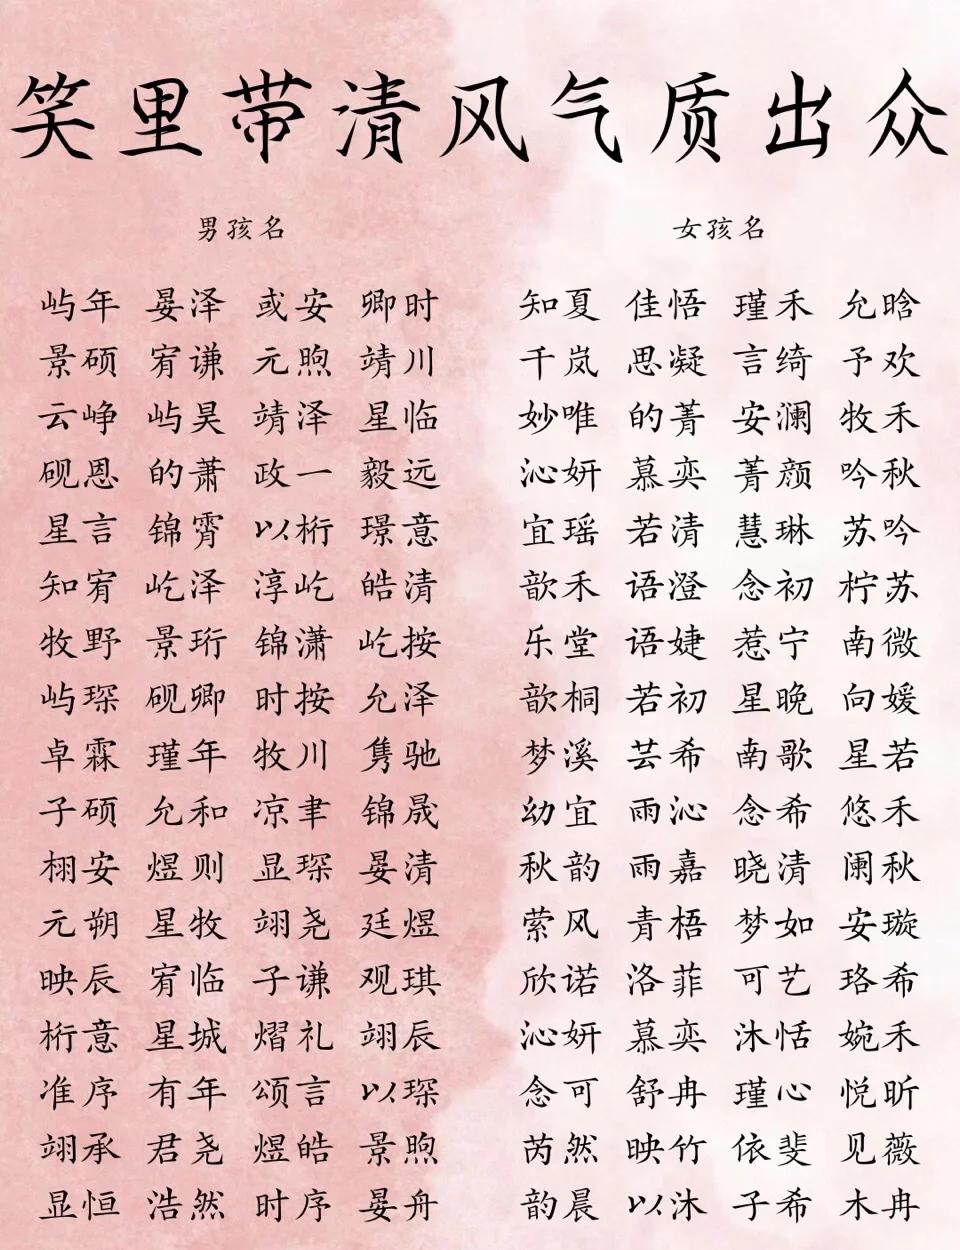 笑里带清风气质出众
男孩名
屿年 晏泽 或安 卿时
景硕 宥谦 元煦 靖川
云峥 屿昊 靖泽 星临
砚恩 的萧 政一 毅远
星言 锦霄 以桁 璟意
知宥 屹泽 淳屹 皓清
牧野 景珩 锦潇 屹按
屿琛 砚卿 时按 允泽
卓霖 瑾年 牧川 隽驰
子硕 允和 凉聿 锦晟
栩安 煜则 显琛 晏清
元朔 星牧 翊尧 廷煜
映辰 宥临 子谦 观琪
桁意 星城 熠礼 翊辰
准序 有年 颂言 以琛
翊承 君尧 煜皓 景煦
显恒 浩然 时序 晏舟
女孩名
知夏 佳悟 瑾禾 允晗
千岚 思凝 言绮 予欢
妙唯 的菁 安澜 牧禾
沁妍 慕奕 菁颜 吟秋
宜瑶 若清 慧琳 苏吟
歆禾 语澄 念初 柠苏
乐堂 语婕 惹宁 南微
歆桐 若初 星晚 向媛
梦溪 芸希 南歌 星若
幼宜 雨沁 念希 悠禾
秋韵 雨嘉 晓清 阑秋
萦风 青梧 梦如 安璇
欣诺 洛菲 可艺 珞希
沁妍 慕奕 沐恬 婉禾
念可 舒冉 瑾心 悦昕
芮然 映竹 依斐 见薇
韵晨 以沐 子希 木冉